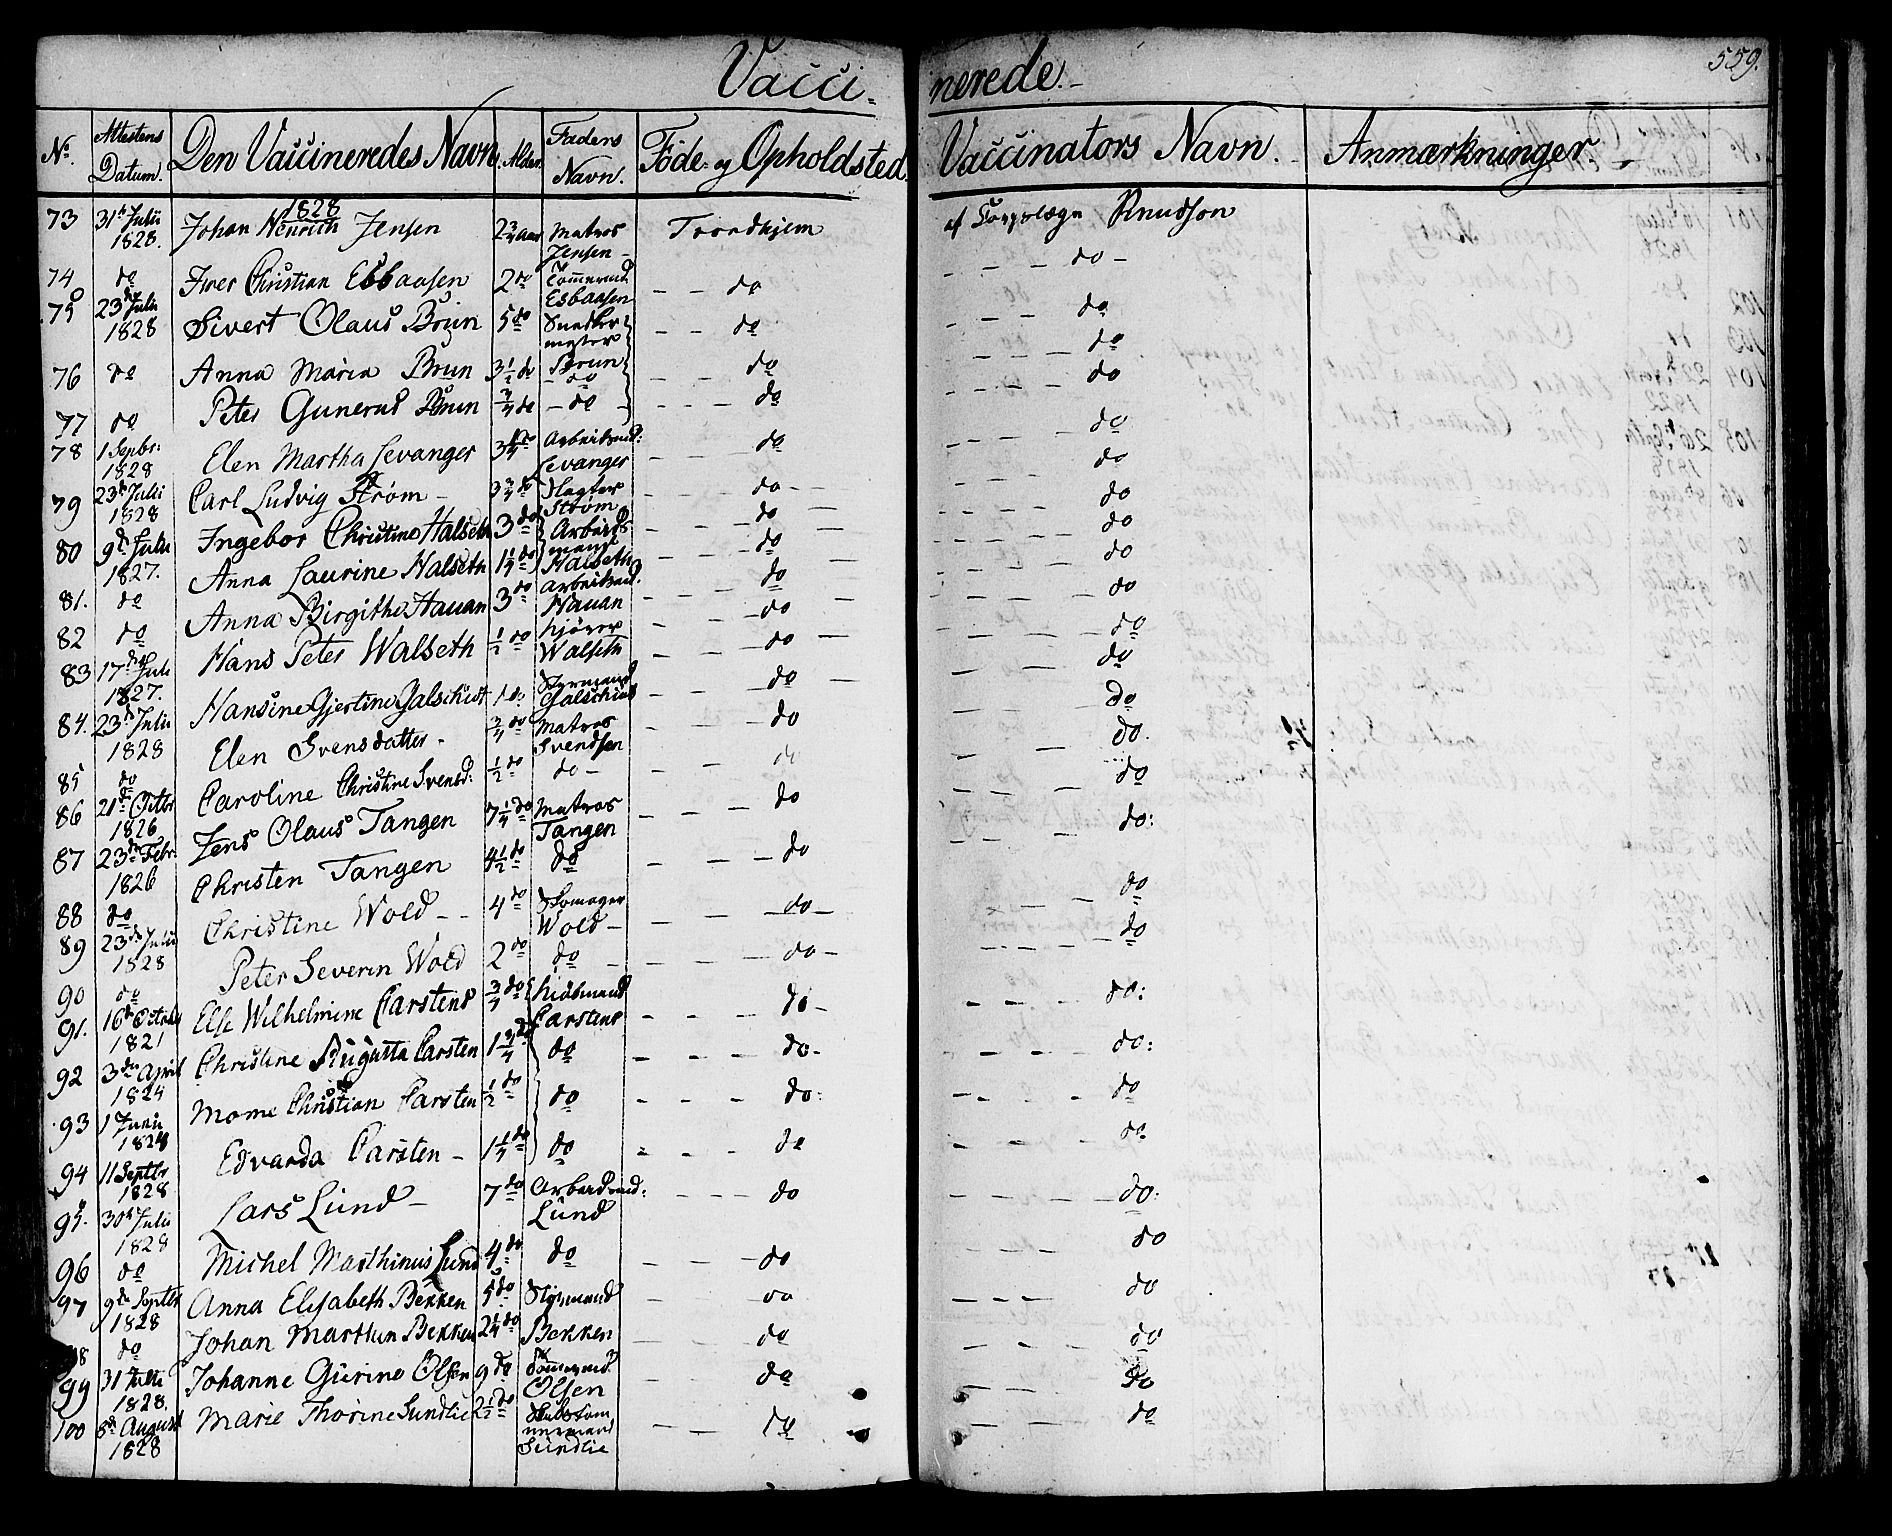 Vacci- nerede.-
559.
No. Attestens Datum. Den Vaccineredes Navn. Alder. Faders Navn. Føde- og Opholdsted. Vaccinators Navn. Anmærkninger.
1828
73 31te Julii 1828. Johan Henrich Jensen 2 3/4 aar Matros Jensen Trondhjem af Corpslæge Knudson
74 do Iver Christian Esbaasen 2 do Tømmermd Esbaasen - - do - - - do -
75 23de Julii 1828 Sivert Olaus Brun 5 do Snedkermester Brun - - do - - - do
76 do Anna Maria Brun 3 1/2 do - do - - do - - - do
77 do Peter Gunerus Brun 3/4 do - do - - - - do - - - do
78 1 Septbr: 1828 Elen Martha Levanger 3 1/4 do Arbeidsmd: Levanger - - do - - - do
79 23de Julii 1828 Carl Ludvig Strøm - 3 3/4 do Slagter Strøm - - - do - - - - - do
80 9de Julii 1827. Ingebor Christine Halseth 3 do Arbeidsmand Halseth - - - do - - - - do
81. do Anna Laurine Halseth 1 1/4 do - - - do - - - do
82 do Anna Birgithe Hauan 3 do Arbeidsmd. Hauan - - - do - - - do
83 17de Juli 1827. Hans Peter Walseth 1/2 do Kjører Walseth - - - do - - - do
84. 23de Julii 1828 Hansine Gjertine Galschiøt 1 do Styrmand Galschiøt - - - do - - - do
Elen Svensdatter - 3/4 do Matros Svendsen - - do - - - do
85 do Caroline Christine Svensd: 1/2 do do - - - do - - - do
86 21de Octbr 1826 Jens Olaus Tangen 7 1/4 do Matros Tangen - - - do - - - do.
87 23de Febr. 1826 Christen Tangen 4 1/2 do do - - - do - - - do
88 do Christine Wold - - 4 do Skomager Wold - - - - do - - - - do:
89 23de Julii 1828 Peter Severin Wold 2 do do - - - - do - - - - do
90 do Else Wilhelmine Carstens 3/4 do Lidsmand Carstens - - - do - - - - do
91. 16de Octobr 1821 Christine Augusta Carsten 1 3/4 do do - - - do - - - - do:
92 3den April 1824 Mome Christian Carsten 1/2 do do - - - do: - - - - do:
93 1 Junii 1828 Edvarda Carsten - 1 1/4 do do - - - do - - - - do
94 11 Septbr 1828 Lars Lund - 7 do Arbeidsmd: Lund - - - do - - - - do
95. 30te Julii 1828 Michel Marthinus Lund 4 do do - - - do - - - - do:
96 do Anna Elisabeth Bekken 5 do Styrmand Bekken - - do - - - do
97 9de Septbr 1828 Johan Marthin Bekken 2 1/4 do - - do - - - do
98 do Johanne Gurine Olsen 9 do Tømmermd. Olsen - - do - - - do
99 31 Julii 1828. Marie Thorine Sundlie 2 1/2 do Sundlie - - do - - - do
100 8de August 1828 do